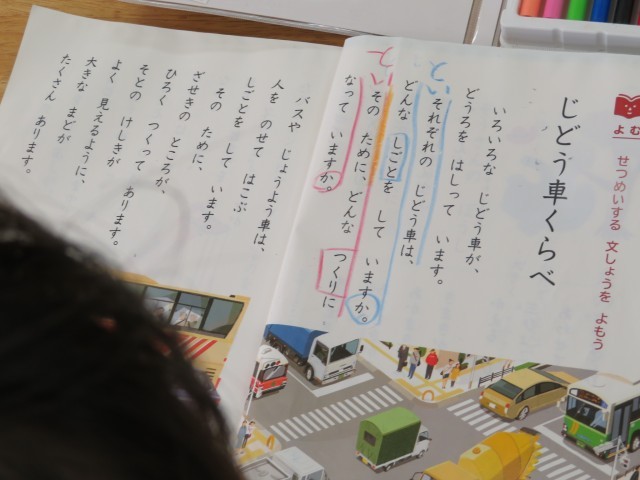 よむ
せつめいする 文しょうを よもう
じどう車くらべ
いろいろな じどう車が、
どうろを はしって います。
とい
それぞれの じどう車は、
どんな しごとを して いますか。
とい
その ために、どんな つくりに
なって いますか。
バスや じょうよう車は、
人を のせて はこぶ
しごとを して います。
その ために、
ざせきの ところが、
ひろく つくって あります。
そとの けしきが
よく 見えるように、
大きな まどが
たくさん あります。